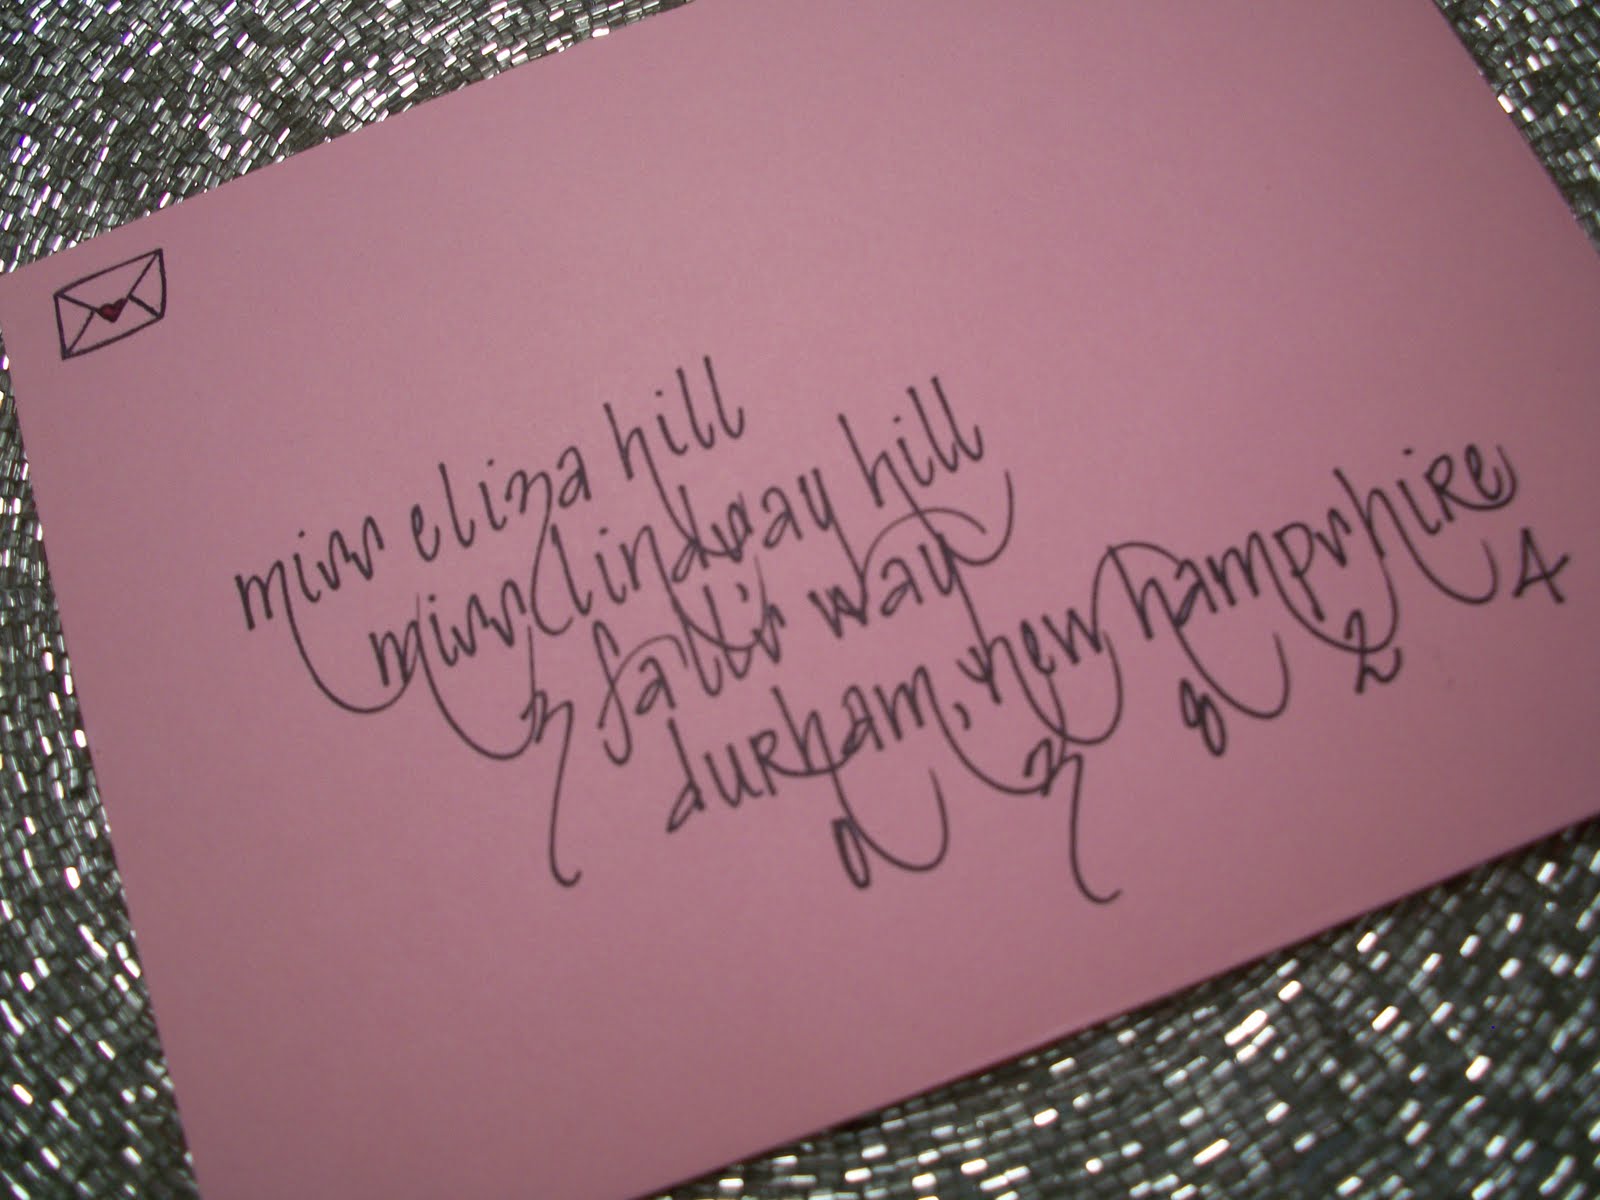 miss eliza hill
miss lindsay hill
3 falls way
durham, new hampshire
0 3 8 2 4